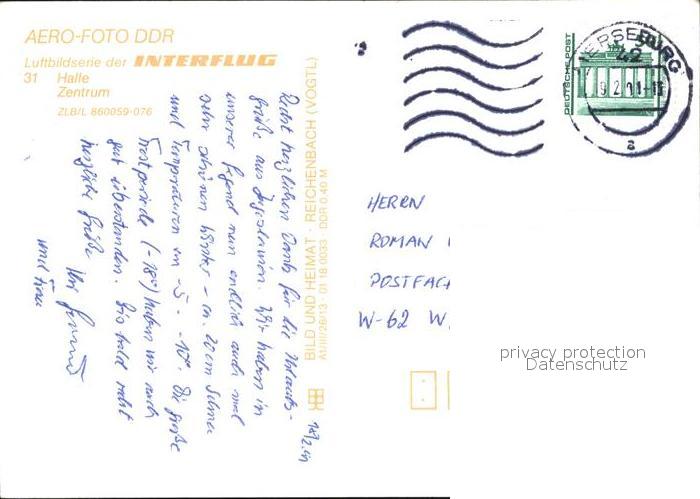 AERO-FOTO DDR
Luftbildserie der INTERFLUG
31 Halle
Zentrum
ZLB/L 860059-076
BILD UND HEIMAT · REICHENBACH (VOGTL)
A1/III/26/13 · 01 18 0033 · DDR 0,40 M
Recht herzlichen Dank für die Urlaubs-
grüße aus Jugoslawien. Wir haben in
unserer Gegend nun endlich auch mal
sehr schönen Winter - ca. 20 cm Schnee
und Temperaturen um -5 - -10°. Die große
Frostperiode (-18°) haben wir auch
gut überstanden. Bis bald
herzliche Grüße
Ihr
und Frau
DEUTSCHE POST
50
MERSEBURG
42
a
HERRN
ROMAN
POSTFACH
W-62 W
privacy protection
Datenschutz